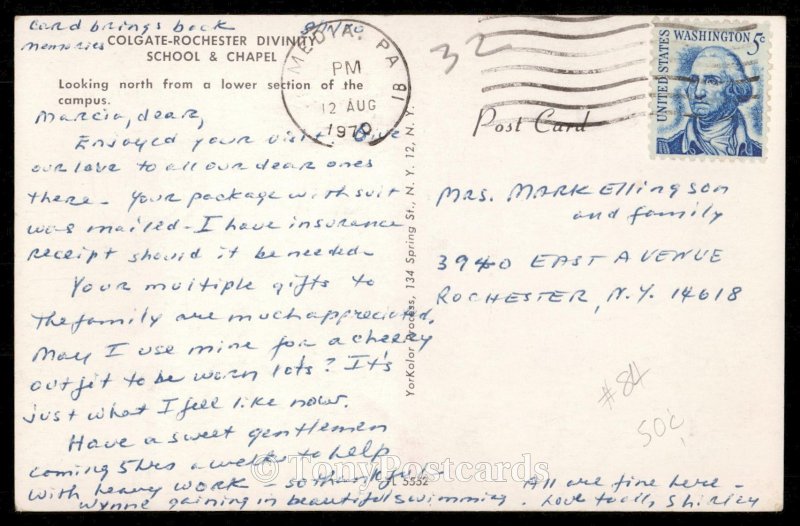 card brings back
memories
COLGATE-ROCHESTER DIVINITY
SCHOOL & CHAPEL
Looking north from a lower section of the
campus.
Marcia, dear,
Enjoyed your visit. Give
our love to all our dear ones
there. Your package with suit
was mailed - I have insurance
receipt should it be needed.
Your multiple gifts to
the family are much appreciated.
May I use mine for a cheery
outfit to be worn lots? It's
just what I feel like now.
Have a sweet gentlemen
coming 5 hrs a week to help
with heavy work - so thankful.
Wynne gaining in beautiful swimming.
All are fine here -
Love to all, Shirley
MEDIA, PA
PM
12 AUG
1970
32
UNITED STATES
WASHINGTON 5c
Post Card
YorKolor Process, 134 Spring St., N. Y. 12, N. Y.
Mrs. Mark Ellingson
and family
3940 EAST AVENUE
ROCHESTER, N.Y. 14618
#84
50¢
5532
© TonyPostcards